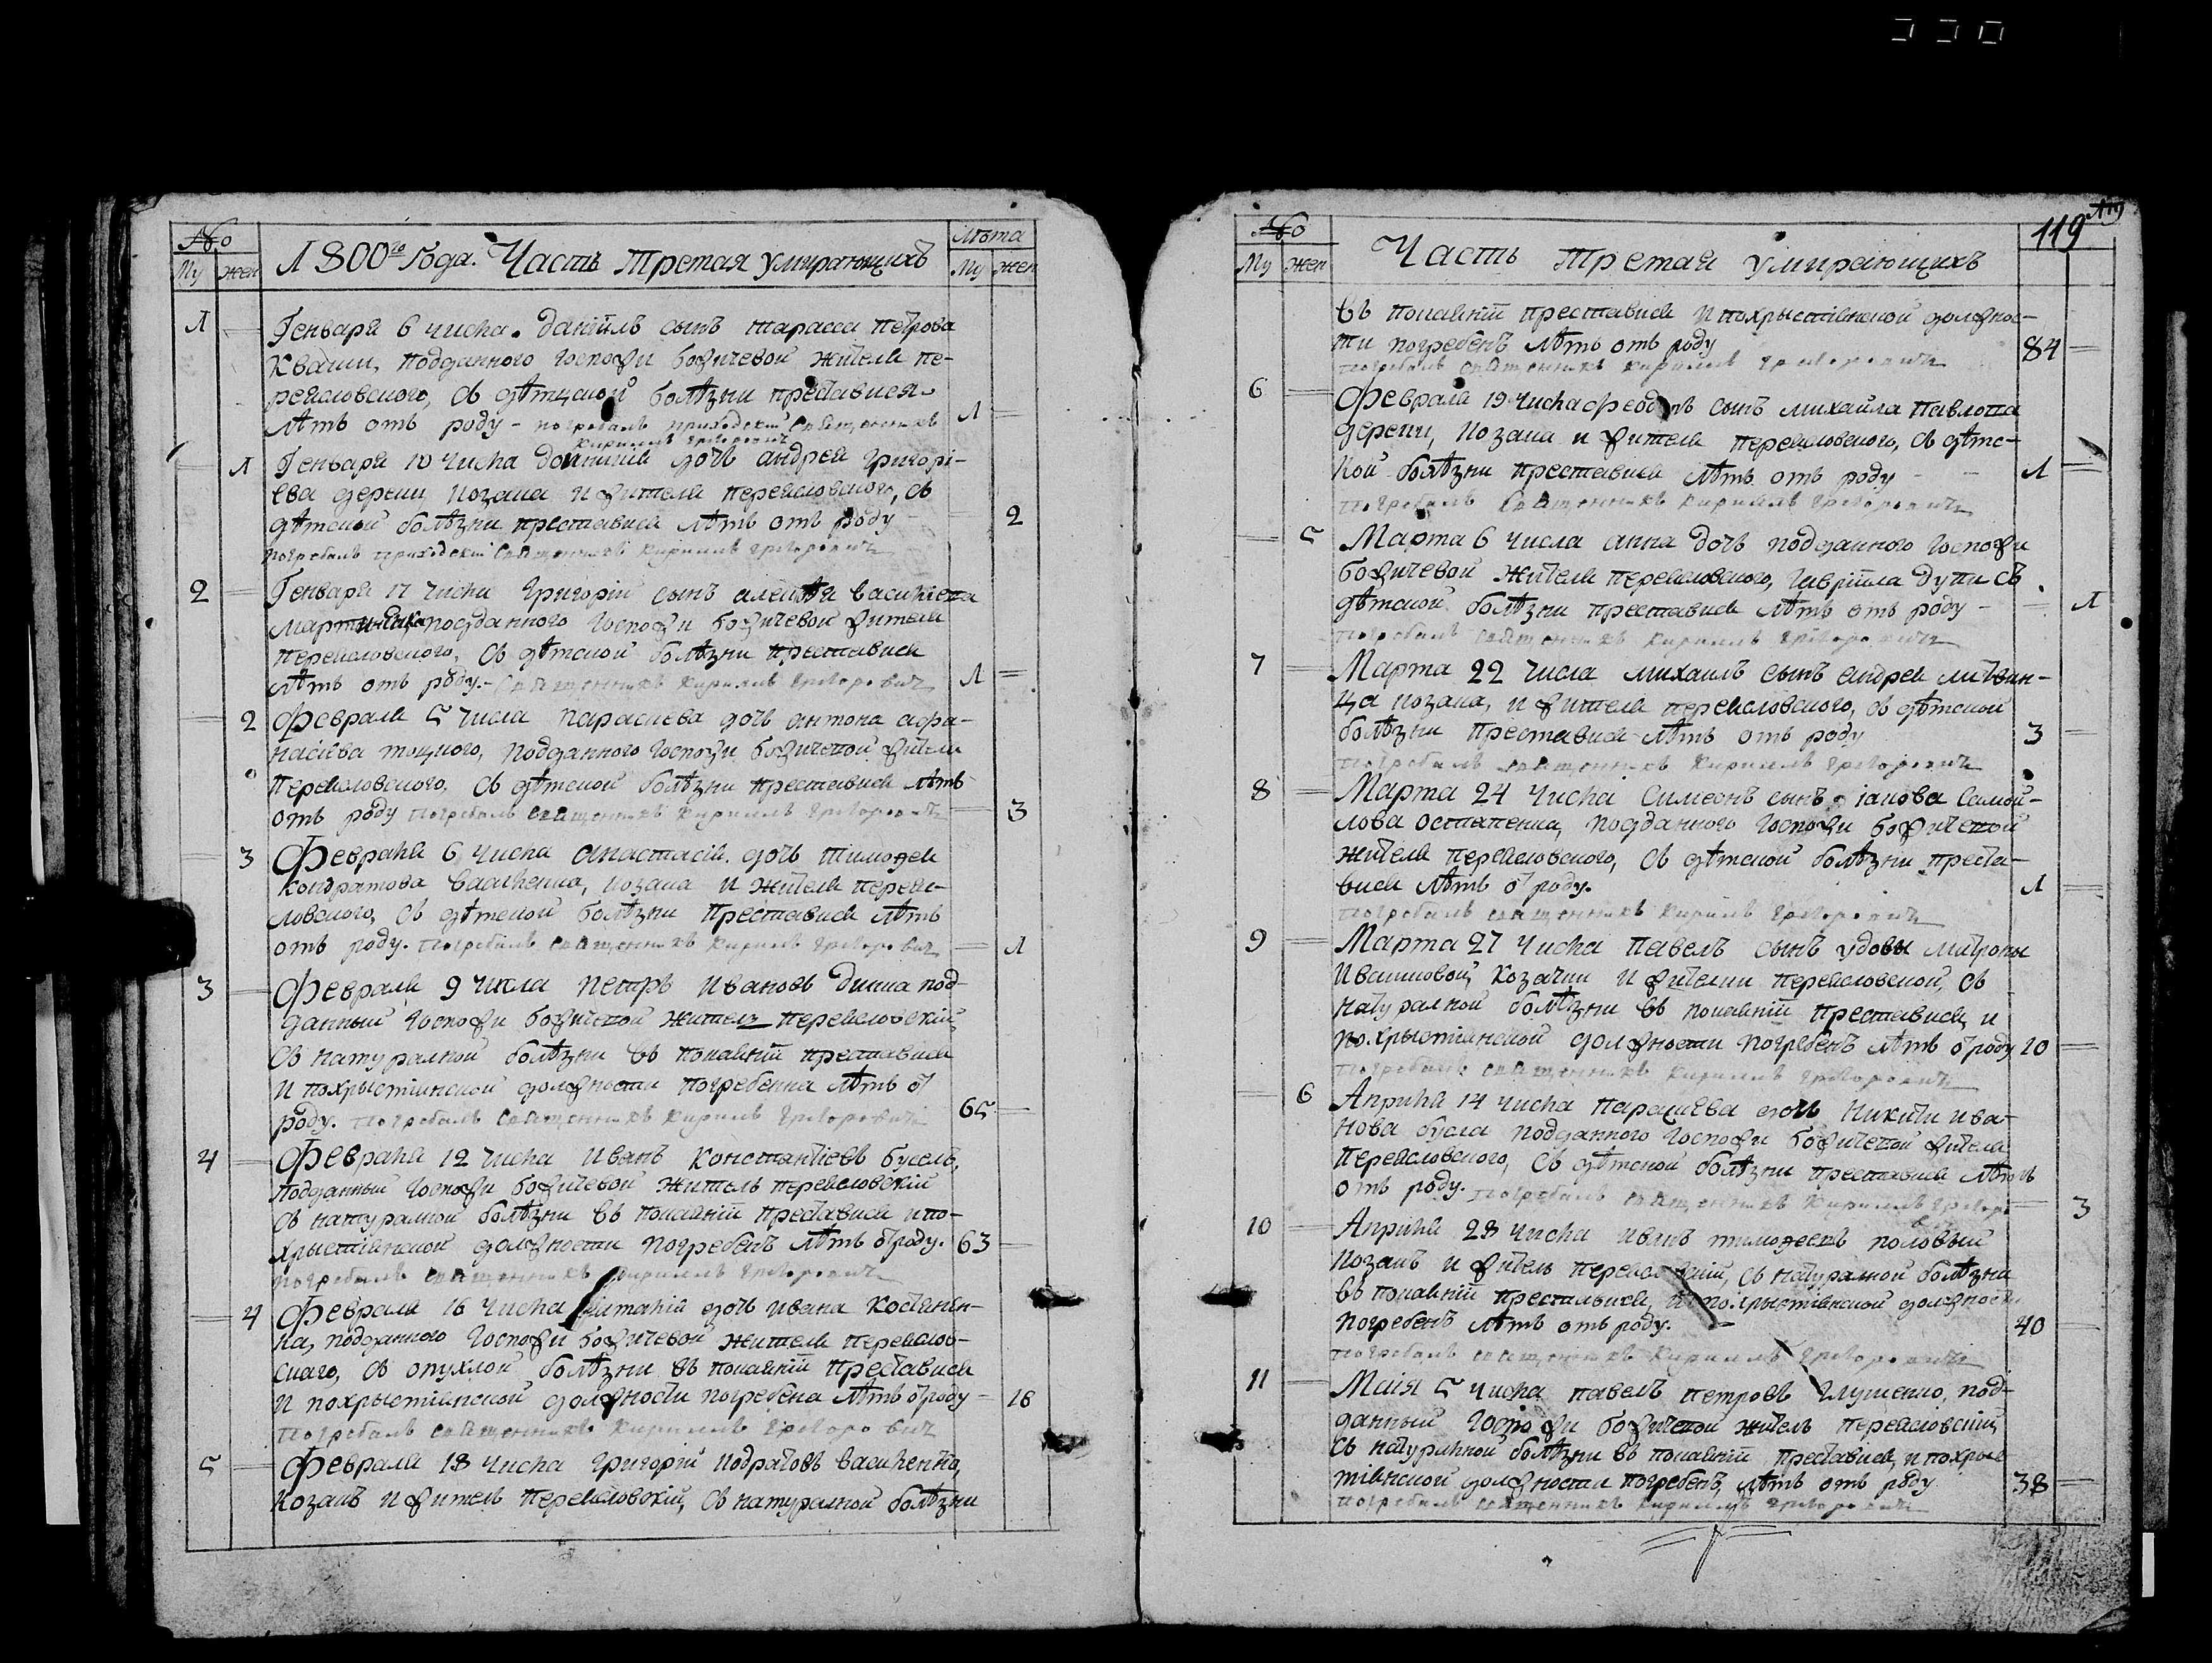 №
Му жен
1800го Года. Часть Третая умирающихъ
Лѣта
Му жен
1 Генваря 6 числа. Даніилъ сынъ тарасса петрова
Квачи, подданного госпожи божичевой жителя пе-
реясловского, съ дѣтцкой болѣзни преставися
лѣтъ отъ роду - погребалъ приходскій священникъ 1
Кириллъ Григоровичъ
1 Генваря 10 числа домникія дочь андрея григорі-
ева козака и жителя переясловского, съ
дѣтской болѣзни преставися лѣтъ отъ роду 2
погребалъ приходскій священникъ Кириллъ Григоровичъ
2 Генваря 17 числа Григорій сынъ алексѣя василіева
подданного госпожи божичевой жителя
переясловского, съ дѣтской болѣзни преставися
лѣтъ отъ роду. - священникъ Кириллъ Григоровичъ 1
2 Февраля 5 числа параскева дочь антона афа-
насіева тоцкого, подданного госпожи божичевой жителя
переясловского, съ дѣтской болѣзни преставися лѣтъ
отъ роду погребалъ священникъ Кириллъ Григоровичъ 3
3 Февраля 6 числа анастасія дочь тимофея
кондратова василенка, козака и жителя переяс-
ловского, съ дѣтской болѣзни преставися лѣтъ
отъ роду. погребалъ священникъ Кириллъ Григоровичъ 1
3 Февраля 9 числа петръ ивановъ под-
данный госпожи божичевой житель переясловскій
съ натуралной болѣзни въ покаяніи преставися
и похрыстіянской должности погребенна лѣтъ отъ
роду. погребалъ священникъ Кириллъ Григоровичъ 65
4 Февраля 12 числа иванъ Константіевъ буселъ,
подданный госпожи божичевой житель переясловскій
съ натуралной болѣзни въ покаяніи преставися и по-
хрыстіянской должности погребенъ лѣтъ отъ роду. 63
погребалъ священникъ Кириллъ Григоровичъ
4 Февраля 16 числа дочь ивана костенен-
ка, подданного госпожи божичевой жителя переяслов-
скаго, съ опухлой болѣзни въ покаяніи преставися
и похрыстіянской должности погребена лѣтъ отъ роду 18
погребалъ священникъ Кириллъ Григоровичъ
5 Февраля 18 числа григорій кодратовъ василенко,
козакъ и житель переясловскій, съ натуралной болѣзни
№
Му жен
Часть Третая умирающихъ
119
въ покаяніи преставися и похрыстіянской должнос-
ти погребенъ лѣтъ отъ роду 84
погребалъ священникъ Кириллъ Григоровичъ
6 Февраля 19 числа сынъ михаила павлова
козака и жителя переясловского, съ дѣтс-
кой болѣзни преставися лѣтъ отъ роду 1
погребалъ священникъ Кириллъ Григоровичъ
5 Марта 6 числа анна дочь подданного госпожи
божичевой жителя переясловского, гавріила съ
дѣтской болѣзни преставися лѣтъ отъ роду 1
погребалъ священникъ Кириллъ Григоровичъ
7 Марта 22 числа михаилъ сынъ андрея литвин-
ца козака, и жителя переясловского, съ дѣтской
болѣзни преставися лѣтъ отъ роду 3
погребалъ священникъ Кириллъ Григоровичъ
8 Марта 24 числа симеонъ сынъ іакова самой-
лова остапенка, подданного госпожи божичевой
жителя переясловского, съ дѣтской болѣзни преста-
вися лѣтъ отъ роду. 1
погребалъ священникъ Кириллъ Григоровичъ
9 Марта 27 числа павелъ сынъ удовы матроны
ивашковой, козачки и жителки переясловской, съ
натуралной болѣзни въ покаяніи преставися, и
похрыстіянской должности погребенъ лѣтъ отъ роду 20
погребалъ священникъ Кириллъ Григоровичъ
6 Априля 14 числа параскева дочь никити ива-
нова бусла подданного госпожи божичевой жителя
переясловского, съ дѣтской болѣзни преставися лѣтъ
отъ роду. погребалъ священникъ Кириллъ Григоро 3
10 Априля 28 числа иванъ тимофеевъ половый
козакъ и житель съ натуралной болѣзни
въ покаяніи преставися, и похрыстіянской должности
погребенъ лѣтъ отъ роду. 40
погребалъ священникъ Кириллъ Григоровичъ
11 Маія 5 числа павелъ петровъ глущенко, под-
данный госпожи божичевой житель переясловскій,
съ натуралной болѣзни въ покаяніи преставися, и похрыс
тіянской должности погребенъ, лѣтъ отъ роду 38
погребалъ священникъ Кириллъ Григоровичъ